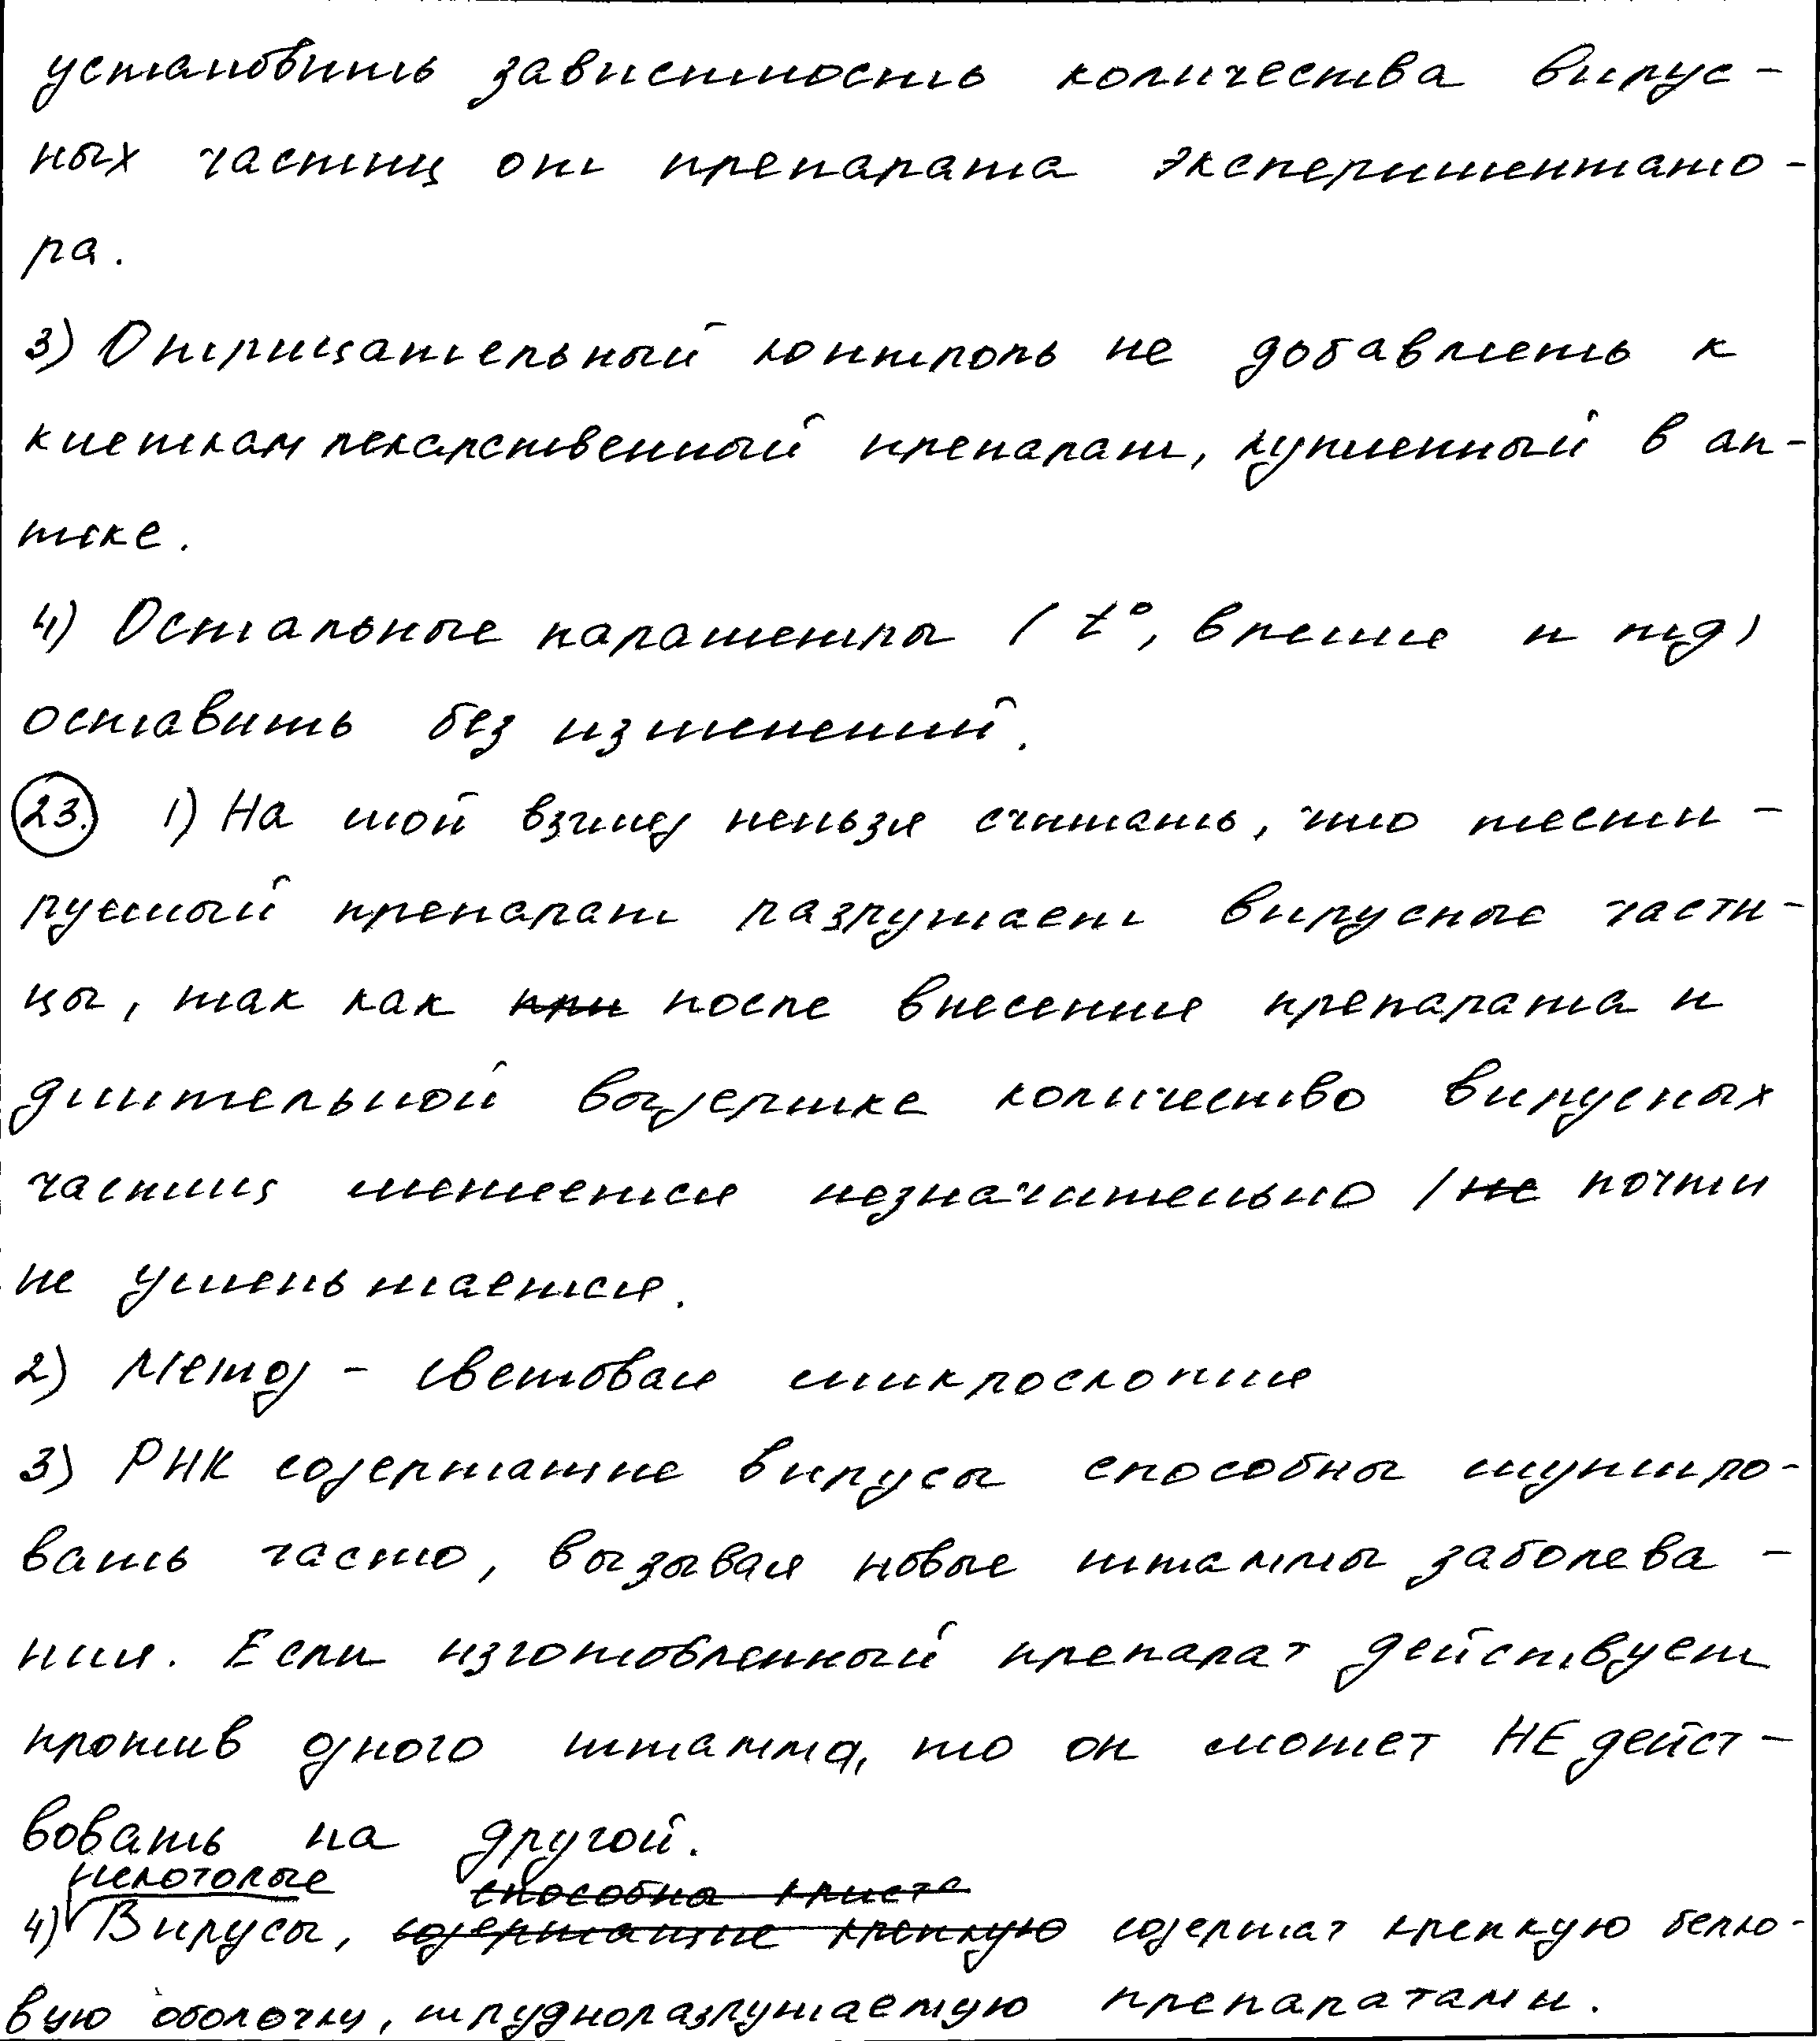 установить зависимость количества вирус-
ных частиц от препарата экспериментато-
ра.
3) Отрицательный контроль не добавлять к
клеткам лекарственный препарат, купленный в ап-
теке.
4) Остальные параметры (t°, время и тд)
оставить без изменений.
23. 1) На мой взгляд нельзя считать, что тести-
руемый препарат разрушает вирусные части-
цы, так как при после внесения препарата и
длительной выдержке количество вирусных
частиц меняется незначительно (не почти
не уменьшается.
2) Метод - световая микроскопия
3) РНК содержащие вирусы способны мутиро-
вать часто, вызывая новые штаммы заболева-
ния. Если изготовленный препарат действует
против одного штамма, то он может НЕ дейст-
вовать на другой.
некоторые способна криста
4) Вирусы, содержащие крепкую содержат крепкую белко-
вую оболочку, трудноразрушаемую препаратами.